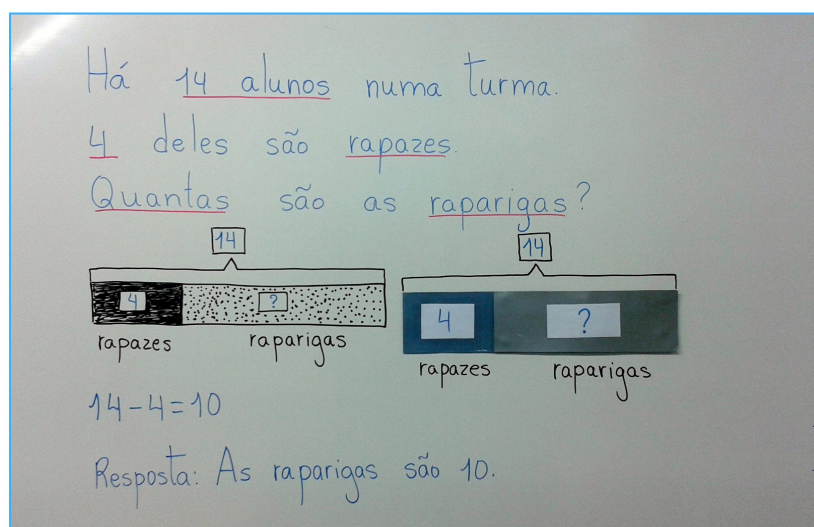 Há 14 alunos numa turma.
4 deles são rapazes.
Quantas são as raparigas?
14
4 ?
rapazes raparigas
14
4 ?
rapazes raparigas
14-4=10
Resposta: As raparigas são 10.